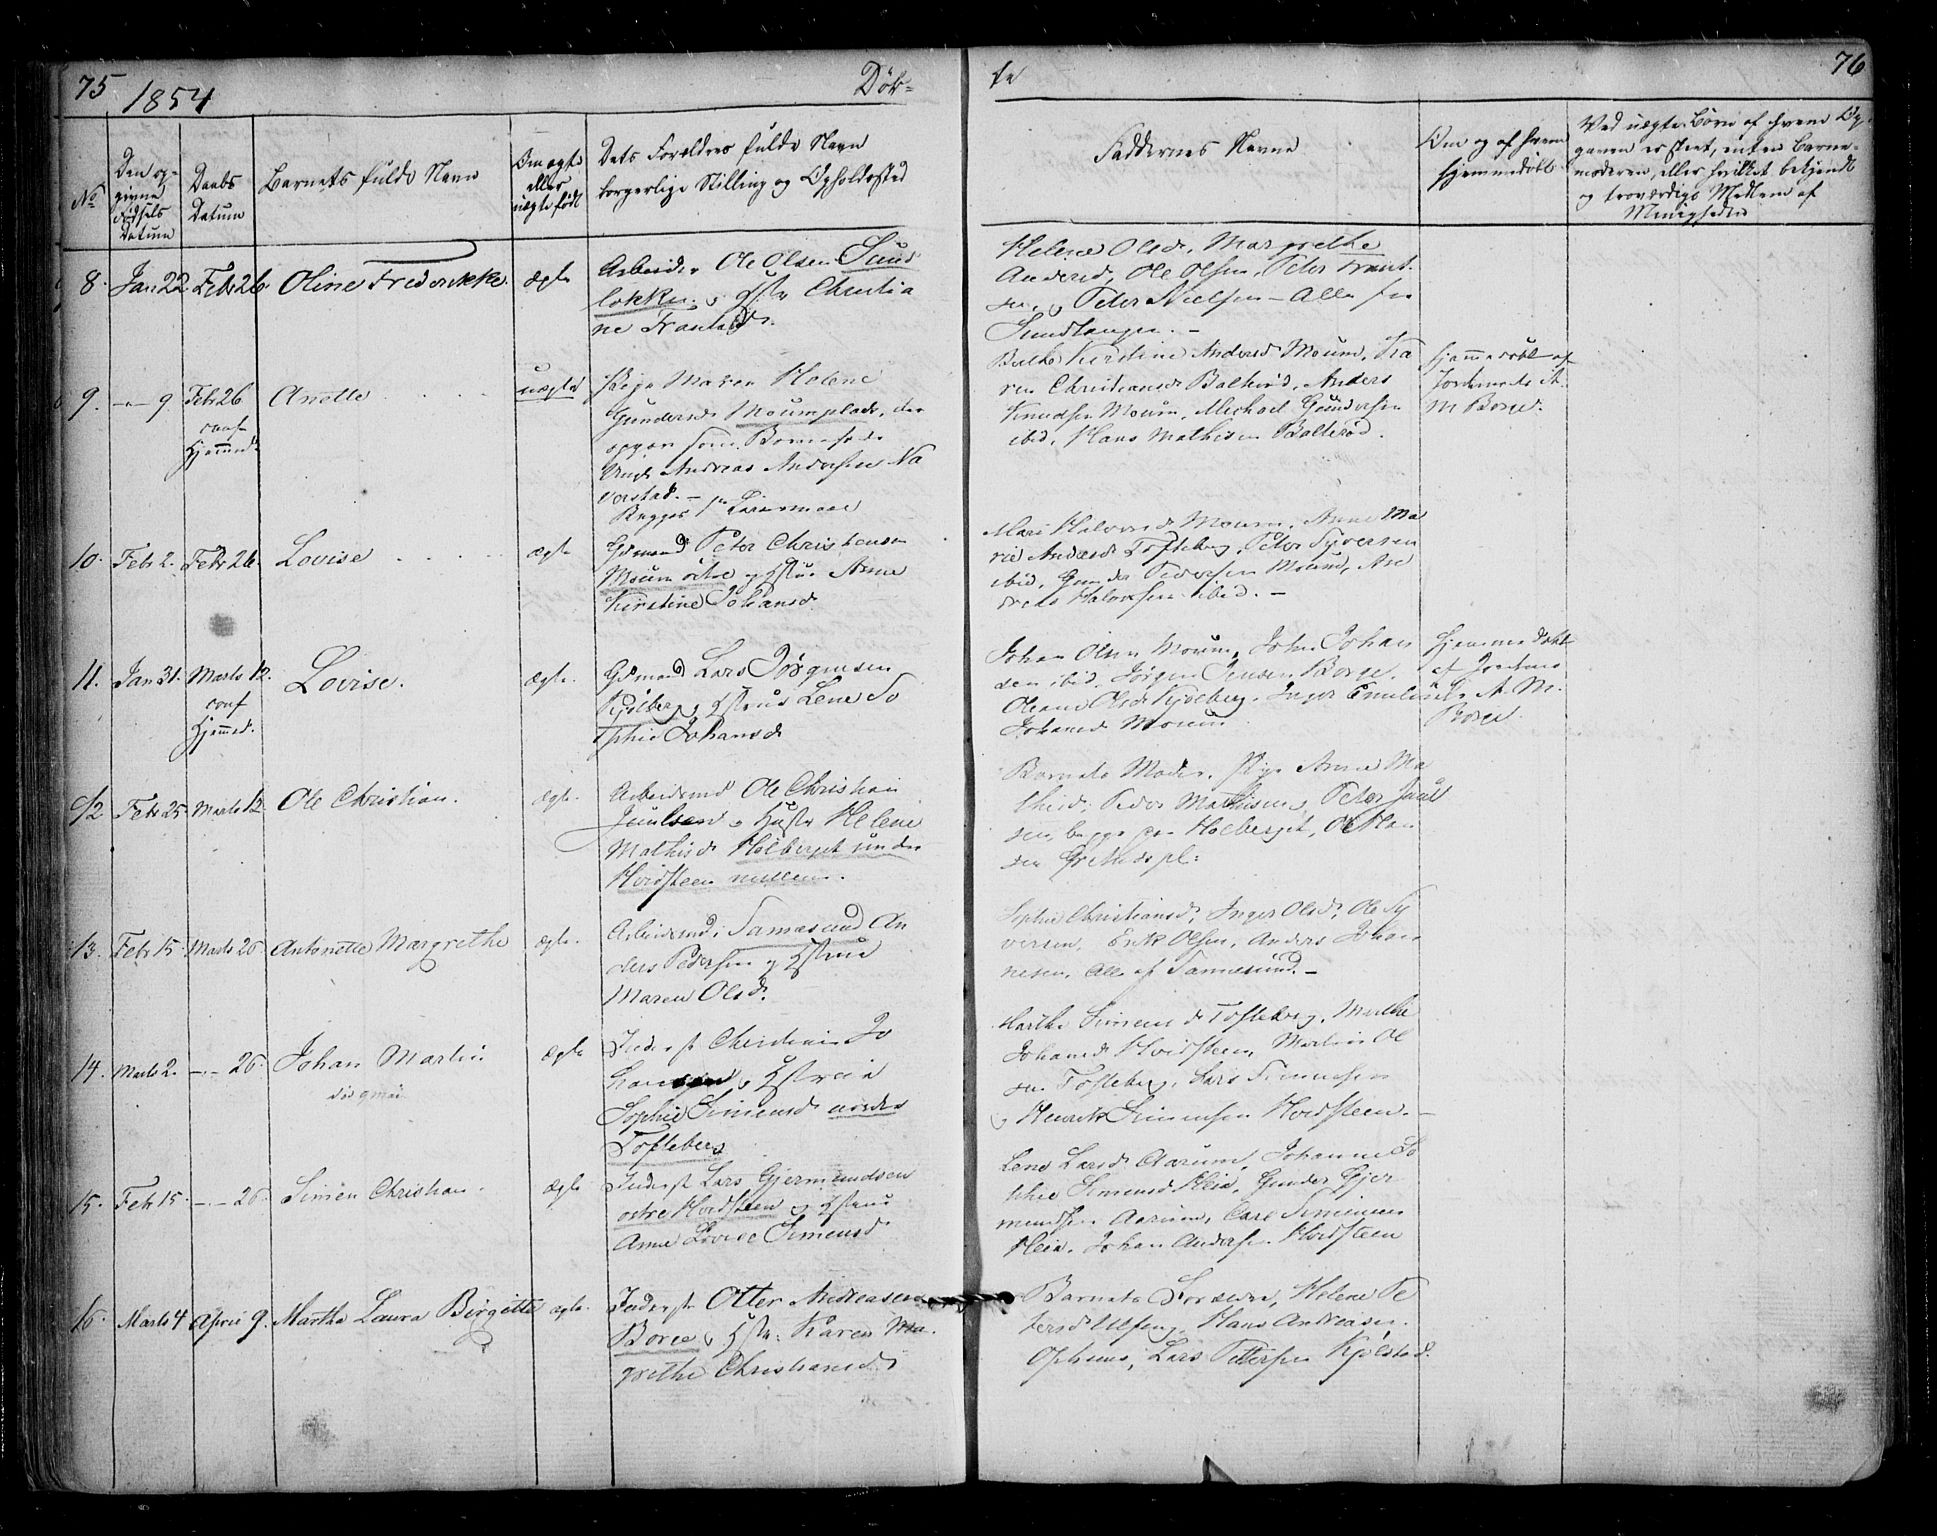 75 1854 Døb-
te 76
No
Den op-
givne
Fødsels
Datum
Daabs
Datum
Barnets fulde Navn
Om ægte
eller
uægte født
Dets Forældres fulde Navn
borgerlige Stilling og Opholdssted
Faddernes Navne
Om og af hvem
hjemmedøbt
Ved uægte Børn af hvem Op-
gaven er skeet, enten Barne-
moderen, eller hvilket bekjendt
og troværdigt Medlem af
Menigheden
8. Jan 22. Febr 26. Oline Frederikke. ægte
Arbeider Ole Olsen Sund
løkken. og Hstr Christia
ne Frantsd.
Helene Olsd, Margrethe
Andersd, Ole Olsen, Peter Frant-
sen, og Peter Nielsen - Alle fra
Sundtangen. -
9. -"- 9 Febr 26
conf
Hjemmed.
Anette uægte
Pige Maren Helene
Gundersd Moumplads, der
opgav som Barnefader
Ungk Andreas Andersen Na
verstad. -
Begges 1ste Leiermaal
Kirstine Andersd Moum, Ka
ren Christiansd Balterød, Anders
Knudsen Moum, Michael Gundersen
ibid, Hans Mathisen Balterød.
hjemmedøbt af
Jordemoder A.
M Borge.
10. Febr 2. Febr 26. Lovise ægte
Gdmand Peter Christensen
Moum østre og Hstrue Anne
Kirstine Johansd
Mari Halvorsd Moum, Anne Ma
rie Andersd Tofteberg, Peter Syversen
ibid, Gunder Pedersen Moum, An
dreas Halvorsen ibid. -
11. Jan 31. Marts 12.
conf
Hjemmed.
Lovise. ægte.
Gdmand Lars Jørgensen
Kjølberg og Hstrue Lene So
phie Johansd
Johan Olsen Moum, John Johan
sen ibid, Jørgen Jensen Borge,
Oleane Olsd Kjølberg, Inger Emilie
Johansd Moum
Hjemmedøbt
af Jordemo
A. M.
Borge.
12 Febr 25. Marts 12. Ole Christian. ægte.
Arbeidsmd Ole Christian
Juulsen og Hustr Helene
Mathisd Holberget under
Hvidsteen mellem.
Barnets Moder, Pige Anne Ma
thisd, Peder Mathisen, Peter Juul
sen begge paa Holberget, Ole Han
sen
13. Febr 15. Marts 26. Antonette Margrethe ægte.
Arbeidsmd i Tamesund An
ders Pedersen og Hstrue
Maren Olsd.
Sophie Christiansd, Inger Olsd, Ole Sy
versen, Erik Olsen, Anders Johan
nesen, Alle af Tamesund. -
14. Marts 2. -"- 26. Johan Martin ægte
Inderst Christian Jo
hansen og Hstrue
Sophie Simensd nedre
Tofteberg
Marthe Simensd Tofteberg, Marthe
Johansd Hvidsteen, Martin Ol
sen Tofteberg, Lars Simensen
og Henrik Simensen Hvidsteen. -
15. Febr 15. -"- 26. Simen Christian. ægte
Inderst Lars Gjermundsen
østre Hvidsteen og Hstrue
Anne Lovise Simensd
Lene Larsd Aarum, Johanne So
phie Simensd Heia, Gunder Gjer
mundsen Aarum, Carl Simensen
Heia, Johan Andersen Hvidsteen
16. Marts 4 April 9. Marthe Laura Birgitte ægte.
Inderst Otter Andreasen
Borge og Hstr: Karen Ma
grethe Christiansd
Barnets Forældre, Helene Pe
tersd Ulfeng, Hans Andreasen
Ophuus, Lars Pettersen Kjølstad.